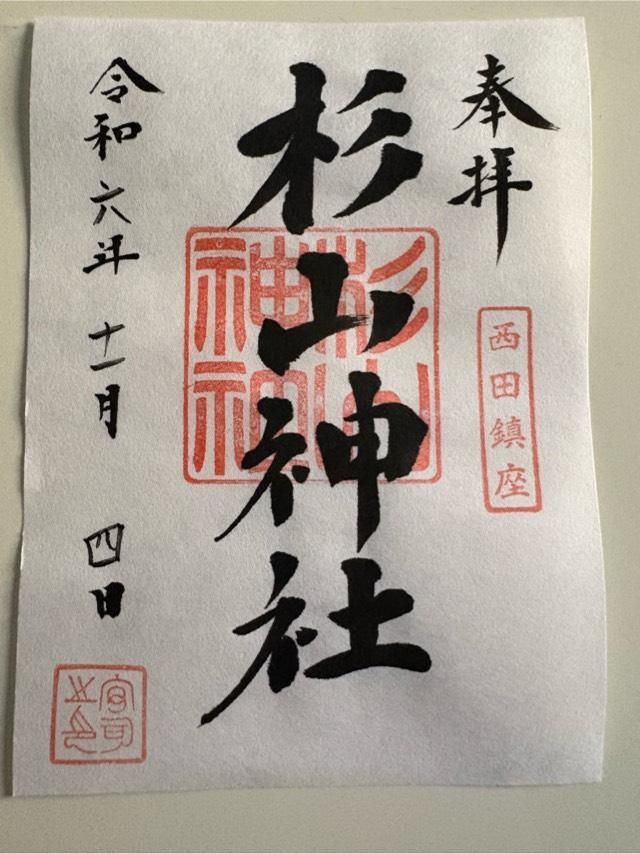 奉拝
西田鎮座
杉山神社
杉山
神社
令和六年 十一月 四日
宮司之印